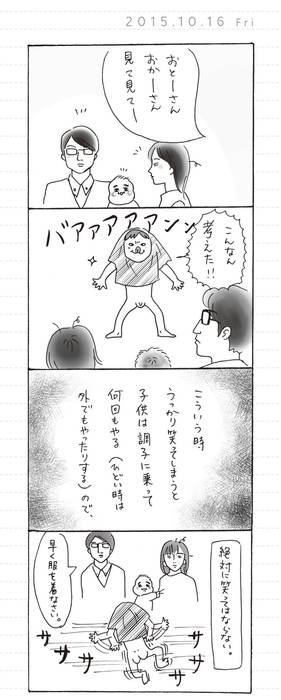 2015.10.16 Fri
おとーさん
おかーさん
見て見てー
バアァアァアンン
こんなん
考えた!!
こういう時
うっかり笑ってしまうと
子供は調子に乗って
何回もやる(ひどい時は
外でもやったりする)ので、
絶対に笑ってはならない。
早く服を着なさい。
ササササ